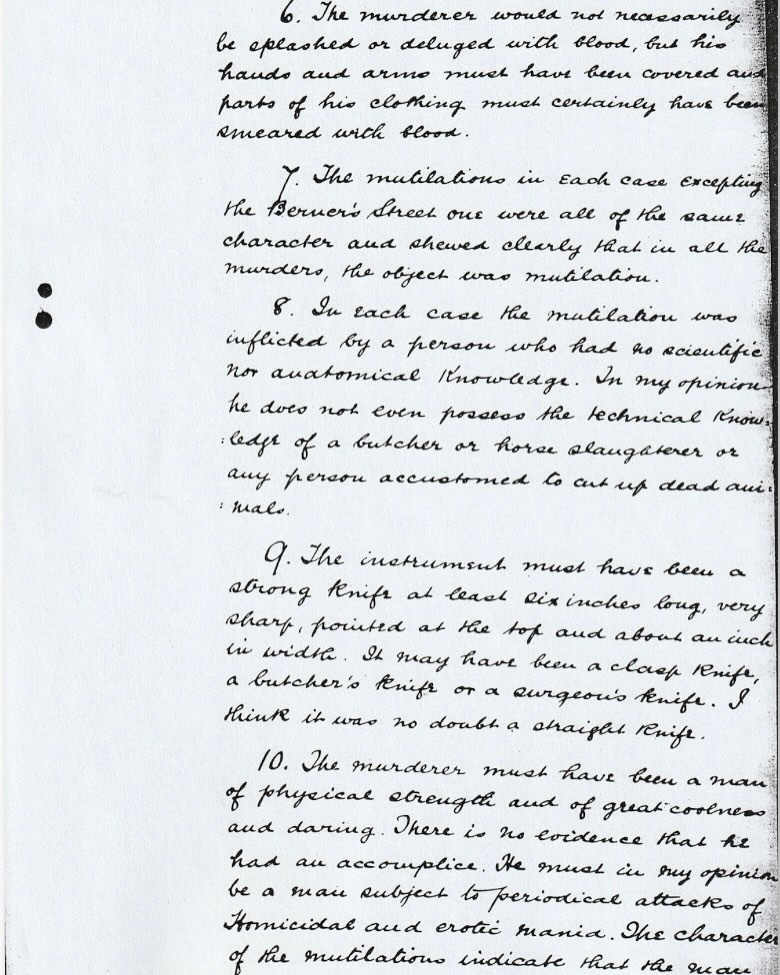 6. The murderer would not necessarily
be splashed or deluged with blood, but his
hands and arms must have been covered and
parts of his clothing must certainly have been
smeared with blood.
7. The mutilations in each case excepting
the Berner's Street one were all of the same
character and shewed clearly that in all the
murders, the object was mutilation.
8. In each case the mutilation was
inflicted by a person who had no scientific
nor anatomical knowledge. In my opinion
he does not even possess the technical know-
:ledge of a butcher or horse slaughterer or
any person accustomed to cut up dead ani-
:mals.
9. The instrument must have been a
strong knife at least six inches long, very
sharp, pointed at the top and about an inch
in width. It may have been a clasp knife,
a butcher's knife or a surgeon's knife. I
think it was no doubt a straight knife.
10. The murderer must have been a man
of physical strength and of great coolness
and daring. There is no evidence that he
had an accomplice. He must in my opinion
be a man subject to periodical attacks of
Homicidal and erotic mania. The character
of the mutilations indicate that the man